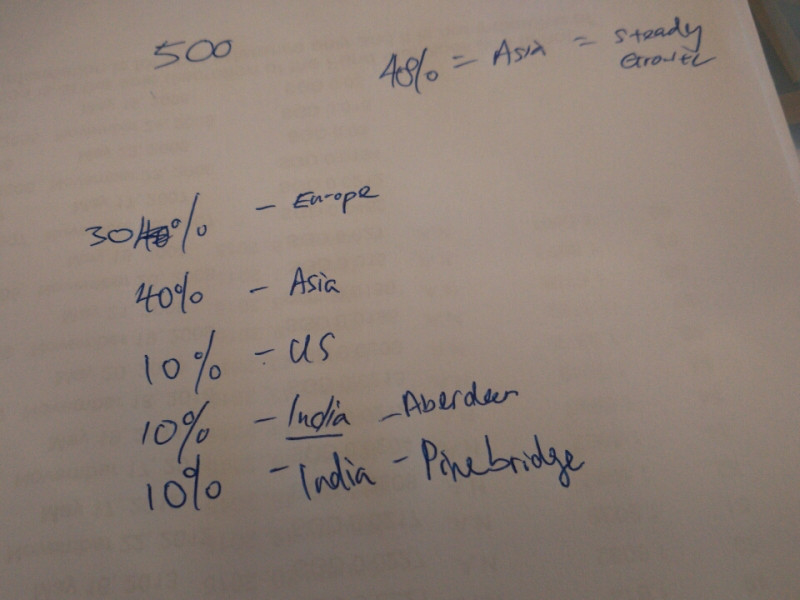 500
40% = Asia = steady
Growth
30% - Europe
40% - Asia
10% - US
10% - India - Aberdeen
10% - India - Pinebridge